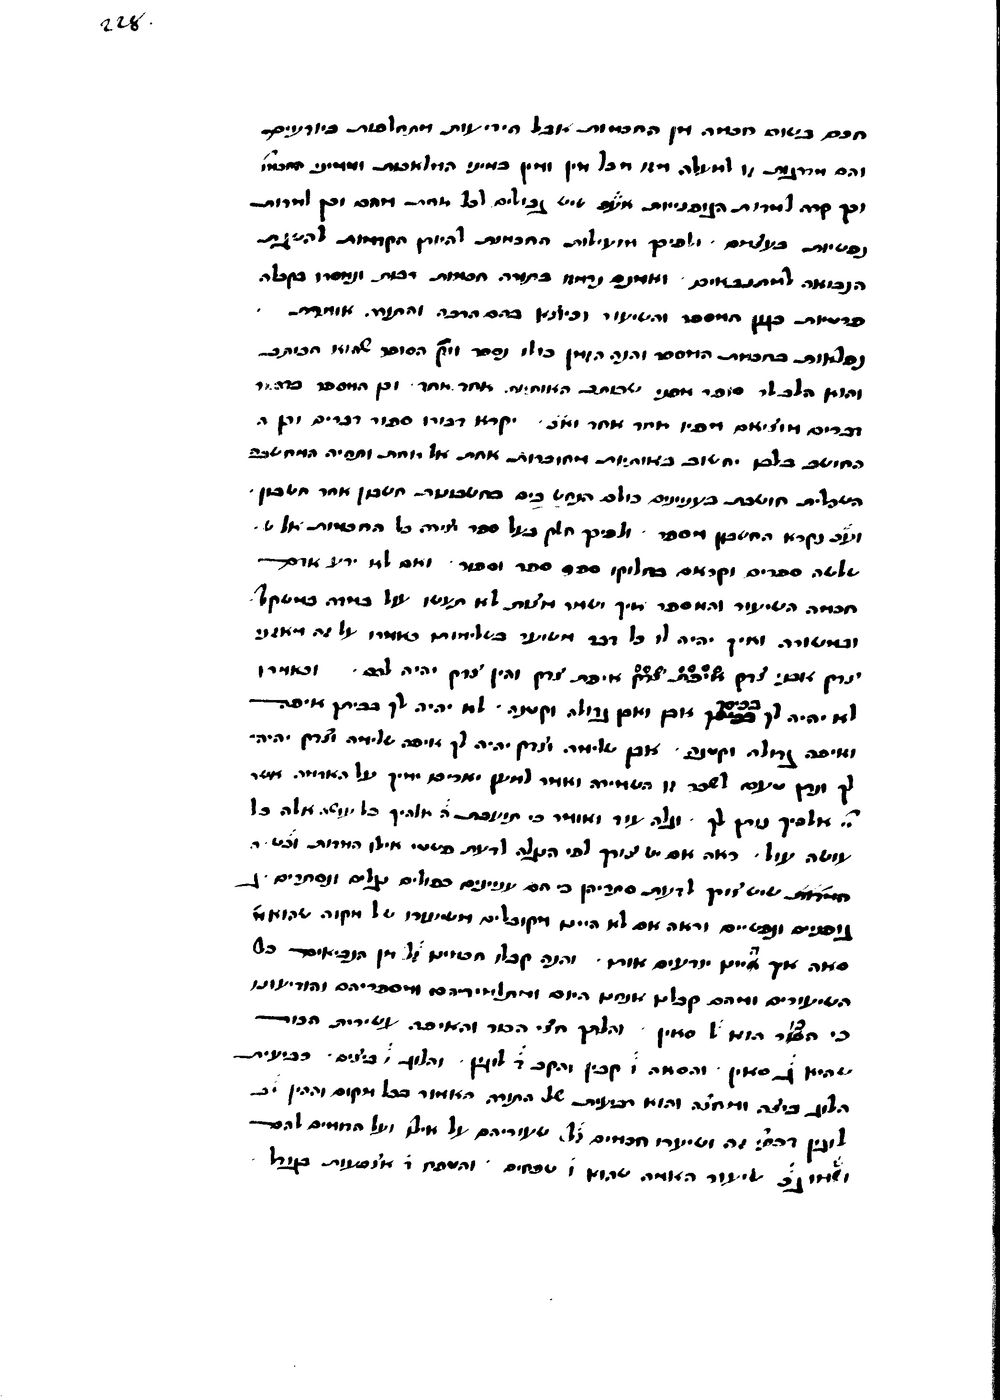 228.
חכם בשום חכמה מן החכמות אבל הידיעות מתחלפות ביודעים
והם מדרגות זו למעלה מזו מכל מין ומין במיני המלאכות וממיני החכמות
וכך קרה למדות הגופניות אע"פ שיש גבולים לכל אחת מהם וכן למדות
נפשיות בעצמם · ולפיכך מועילות החכמות להיותן הקדמות להשגת
הנבואה למתנבאים · ואמנם נרמזו בתורה חכמות רבות ונמסרו בקבלה
פרטיות כגון המספר והשיעור וכיוצא בהם הרבה והתורה אומרת ·
נפלאות בחכמת המספר והנה הזמן כולו נספר הסופר שהוא הכותב
והוא הלבלר סופר מפני שכותב האותיות אחד אחד · וכן המספר בדבור
דברים מוציאם מפיו אחד אחר ואחד · יקרא דבורו ספור דברים וכן ה
החושב בלבו יחשוב באותיות מחוברות אחת אל אחת ותהיה המחשבה
השכלית חושבת בעניינים כולם הנחשבים במחשבות חשבון אחר חשבון ·
וע"כ נקרא החשבון מספר · ולפיכך חלק בעל ספר יצירה כל החכמות אל ש ·
שלשה ספרים וקראם בחלוקו ספר ספר וספור · ואם לא ידע אדם
חכמת השיעור והמספר איך ישמר מצות לא תעשו עול במדה במשקל
ובמשורה ואיך יהיה לו כל דבר משוער בשלימות כאמרו על זה מאזני
צדק אבני צדק איפת צדק איפת צדק והין צדק יהיה לכם · וכאמרו
לא יהיה לך בכיסך אבן ואבן גדולה וקטנה · לא יהיה לך בביתך איפה
ואיפה גדולה וקטנה · אבן שלימה וצדק יהיה לך איפה שלימה וצדק יהיה
לך ונתן טעם לשכר זו השמירה ואמר למען יאריכון ימיך על האדמה אשר
יי' אלהיך נותן לך · וגלה עוד ואומר כי תועבת ה' אלהיך כל עושה אלה כל
עושה עול · ראה אם יש צורך לפי הנגלה לדעת פשטי אילו המדות וכ"ש · ה
המדות שיש צורך לדעת סתריהן כי הם עניינים כפולים נגלים ונסתרים · ג
גופניים ונפשיים וראה אם לא היינו מקובלים משיעורו של מקוה שהוא מ'
סאה איך היינו יודעים אותו · והנה קבלו חכמים ז"ל מן הנביאים כל
השיעורים ומהם קבלנו אנחנו היום ומתלמידיהם ומספריהם והודיעונו
כי הכור הוא ל' סאין · והלתך חצי הכור והאיפה עשירית הכור
שהיא ג' סאין · והסאה ו' קבין והקב ד' לוגין · והלוג ו' ביצים · רביעית
הלוג ביצה ומחצה והוא רביעית של התורה האמור בכל מקום וההין י"ב
לוגין זה ושיערו חכמים כל שעוריהם על אילו ועל הדומים להם
שיעור האמה שהוא ו' טפחים · והטפח ד' אצבעות בגודל ·